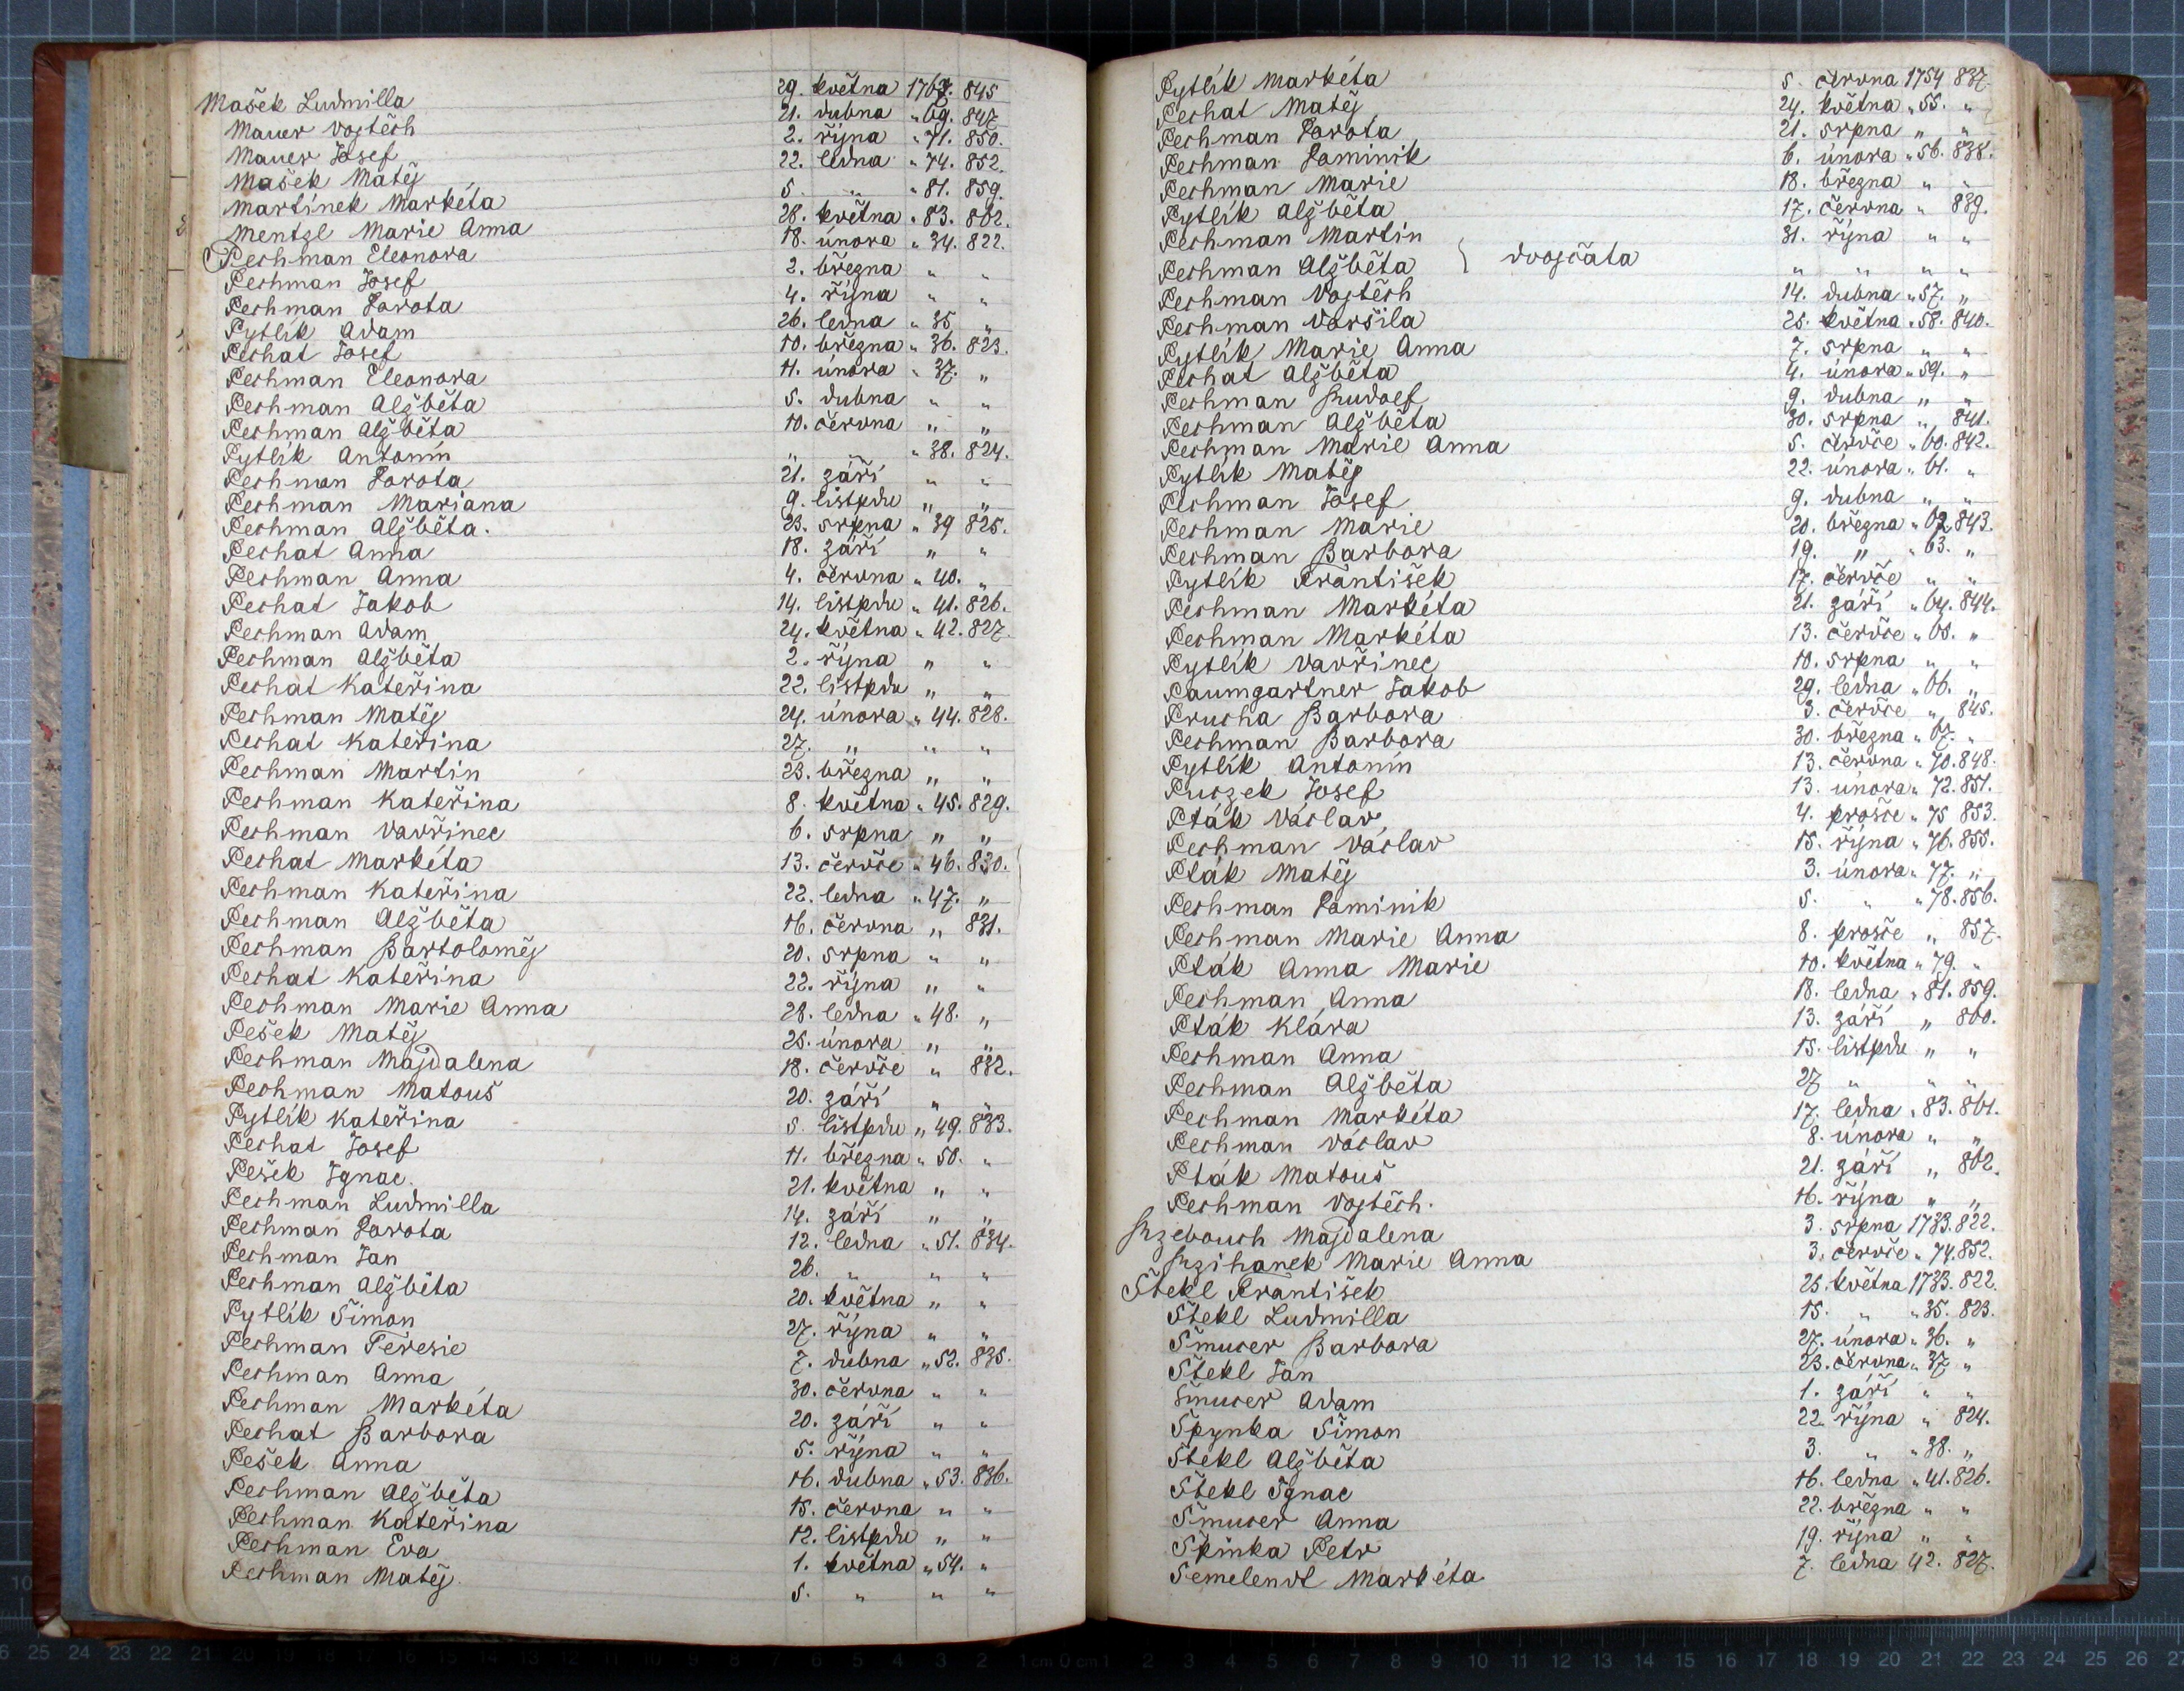 Mašek Ludmilla 29. května 1767. 845
Mauer Vojtěch 21. dubna „ 69. 847
Mauer Josef 2. října „ 71. 850.
Mašek Matěj 22. ledna „ 74. 852.
Martínek Markéta 5. „ „ 81. 859.
Mentzl Marie Anna 28. května „ 83. 862.
Pechman Eleonora 18. února „ 34. 822.
Pechman Josef 2. března „ „
Pechman Dorota 4. října „ „
Pytlík Adam 26. ledna „ 35 „
Pechat Josef 10. března „ 36. 823.
Pechman Eleonora 11. února „ 37. „
Pechman Alžběta 5. dubna „ „
Pechman Alžběta 10. června „ „
Pytlík Antonín „ „ „ 38. 824.
Pechman Dorota 21. září „ „
Pechman Mariana 9. listpdu „ „
Pechman Alžběta. 23. srpna „ 39 825.
Pechat Anna 18. září „ „
Pechman Anna 4. června „ 40. „
Pechat Jakob 14. listpdu „ 41. 826.
Pechman Adam 24. května „ 42. 827.
Pechman Alžběta 2. října „ „
Pechat Kateřina 22. listpdu „ „
Pechman Matěj 24. února „ 44. 828.
Pechat Kateřina 27. „ „ „
Pechman Martin 23. března „ „
Pechman Kateřina 8. května „ 45. 829.
Pechman Vavřinec 6. srpna „ „
Pechat Markéta 13. červče „ 46. 830.
Pechman Kateřina 22. ledna „ 47. „
Pechman Alžběta 16. června „ 831.
Pechman Bartoloměj 20. srpna „ „
Pechat Kateřina 22. října „ „
Pechman Marie Anna 28. ledna „ 48. „
Pešek Matěj 25. února „ „
Pechman Majdalena 18. červče „ 832.
Pechman Matouš 20. září „ „
Pytlík Kateřina 5. listpdu „ 49. 833.
Pechat Josef 11. března „ 50. „
Pešek Ignac. 21. května „ „
Pechman Ludmilla 14. září „ „
Pechman Dorota 12. ledna „ 51. 834.
Pechman Jan 26. „ „ „
Pechman Alžběta 20. května „ „
Pytlík Šimon 27. října „ „
Pechman Teresie 7. dubna „ 52. 835.
Pechman Anna 30. června „ „
Pechman Markéta 20. září „ „
Pechat Barbora 5. října „ „
Pešek Anna 16. dubna „ 53. 836.
Pechman Alžběta 15. června „ „
Pechman Kateřina 12. listpdu „ „
Pechman Eva 1. května „ 54. „
Pechman Matěj. 5. „ „ „
Pytlík Markéta 5. června 1754 837
Pechat Matěj 24. května „ 55. „
Pechman Dorota 21. srpna „ „
Pechman Dominik 6. února „ 56. 838.
Pechman Marie 18. března „ „
Pytlík Alžběta 17. června „ 839.
Pechman Martin 31. října „ „
Pechman Alžběta } dvojčata „ „ „ „
Pechman Vojtěch 14. dubna „ 57. „
Pechman Voršila 25. května „ 58. 840.
Pytlík Marie Anna 7. srpna „ „
Pechat Alžběta 4. února „ 59. „
Pechman Rudolf 9. dubna „ „
Pechman Alžběta 30. srpna „ 841.
Pechman Marie Anna 5. červče „ 60. 842.
Pytlík Matěj 22. února „ 61. „
Pechman Josef 9. dubna „ „
Pechman Marie 20. března „ 62. 843.
Pechman Barbora 19. „ „ 63. „
Pytlík František 17. červče „ „
Pechman Markéta 21. září „ 64. 844.
Pechman Markéta 13. červče „ 65. „
Pytlík Vavřinec 10. srpna „ „
Paumgartner Jakob 29. ledna „ 66. „
Prucha Barbora 3. červče „ 845.
Pechman Barbora 30. března „ 67. „
Pytlík Antonín 13. června „ 70. 848.
Puczek Josef 13. února „ 72. 851.
Pták Václav 4. prosce „ 75 853.
Pechman Václav 15. října „ 76. 855.
Pták Matěj 3. února „ 77. „
Pechman Dominik 5. „ „ 78. 856.
Pechman Marie Anna 8. prosce „ 857.
Pták Anna Marie 10. května „ 79. „
Pechman Anna 18. ledna „ 81. 859.
Pták Klára 13. září „ 860.
Pechman Anna 15. listpdu „ „
Pechman Alžběta 27 „ „ „
Pechman Markéta 17. ledna „ 83. 861.
Pechman Václav 8. února „ „
Pták Matouš 21. září „ 862.
Pechman Vojtěch. 16. října „ „
Rzebouch Majdalena 3. srpna 1733. 822.
Rzihanek Marie Anna 3. červče „ 74. 852.
Štekl František 25. května 1733. 822.
Štekl Ludmilla 15. „ „ 35. 823.
Šmucer Barbora 27. února „ 36. „
Štekl Jan 23. června „ 37 „
Šmucer Adam 1. září „ „
Špynka Šimon 22. října „ 824.
Štekl Alžběta 3. „ „ 38. „
Štekl Ignac 16. ledna „ 41. 826.
Šmucer Anna 22. března „ „
Špinka Petr 19. října „ „
Semelendl Markéta 7. ledna 42. 827.